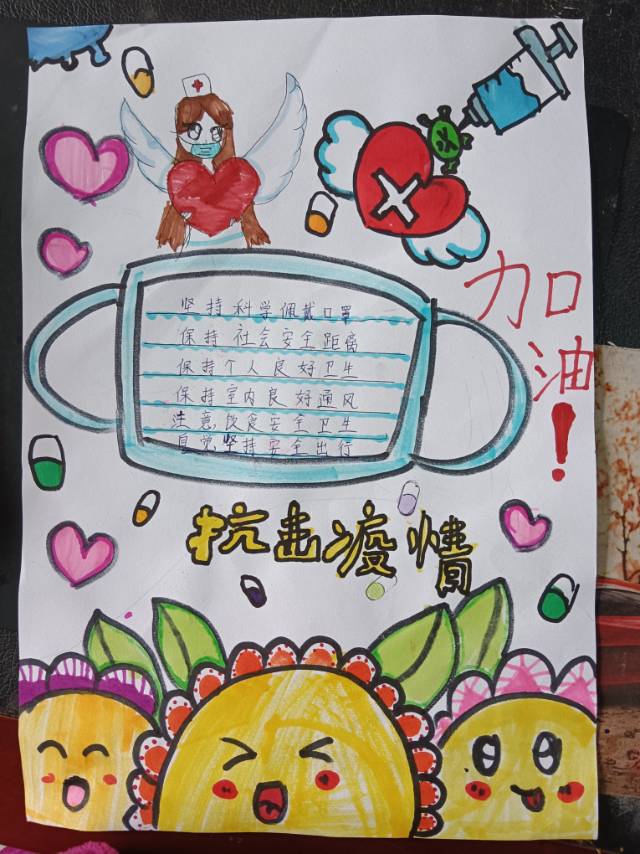 坚持科学佩戴口罩
保持社会安全距离
保持个人良好卫生
保持室内良好通风
注意饮食安全卫生
自觉坚持安全出行
加
油
!
抗击疫情